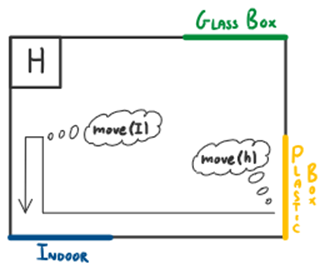 GLASS BOX
H
move(I)
move(h)
PLASTIC
BOX
INDOOR